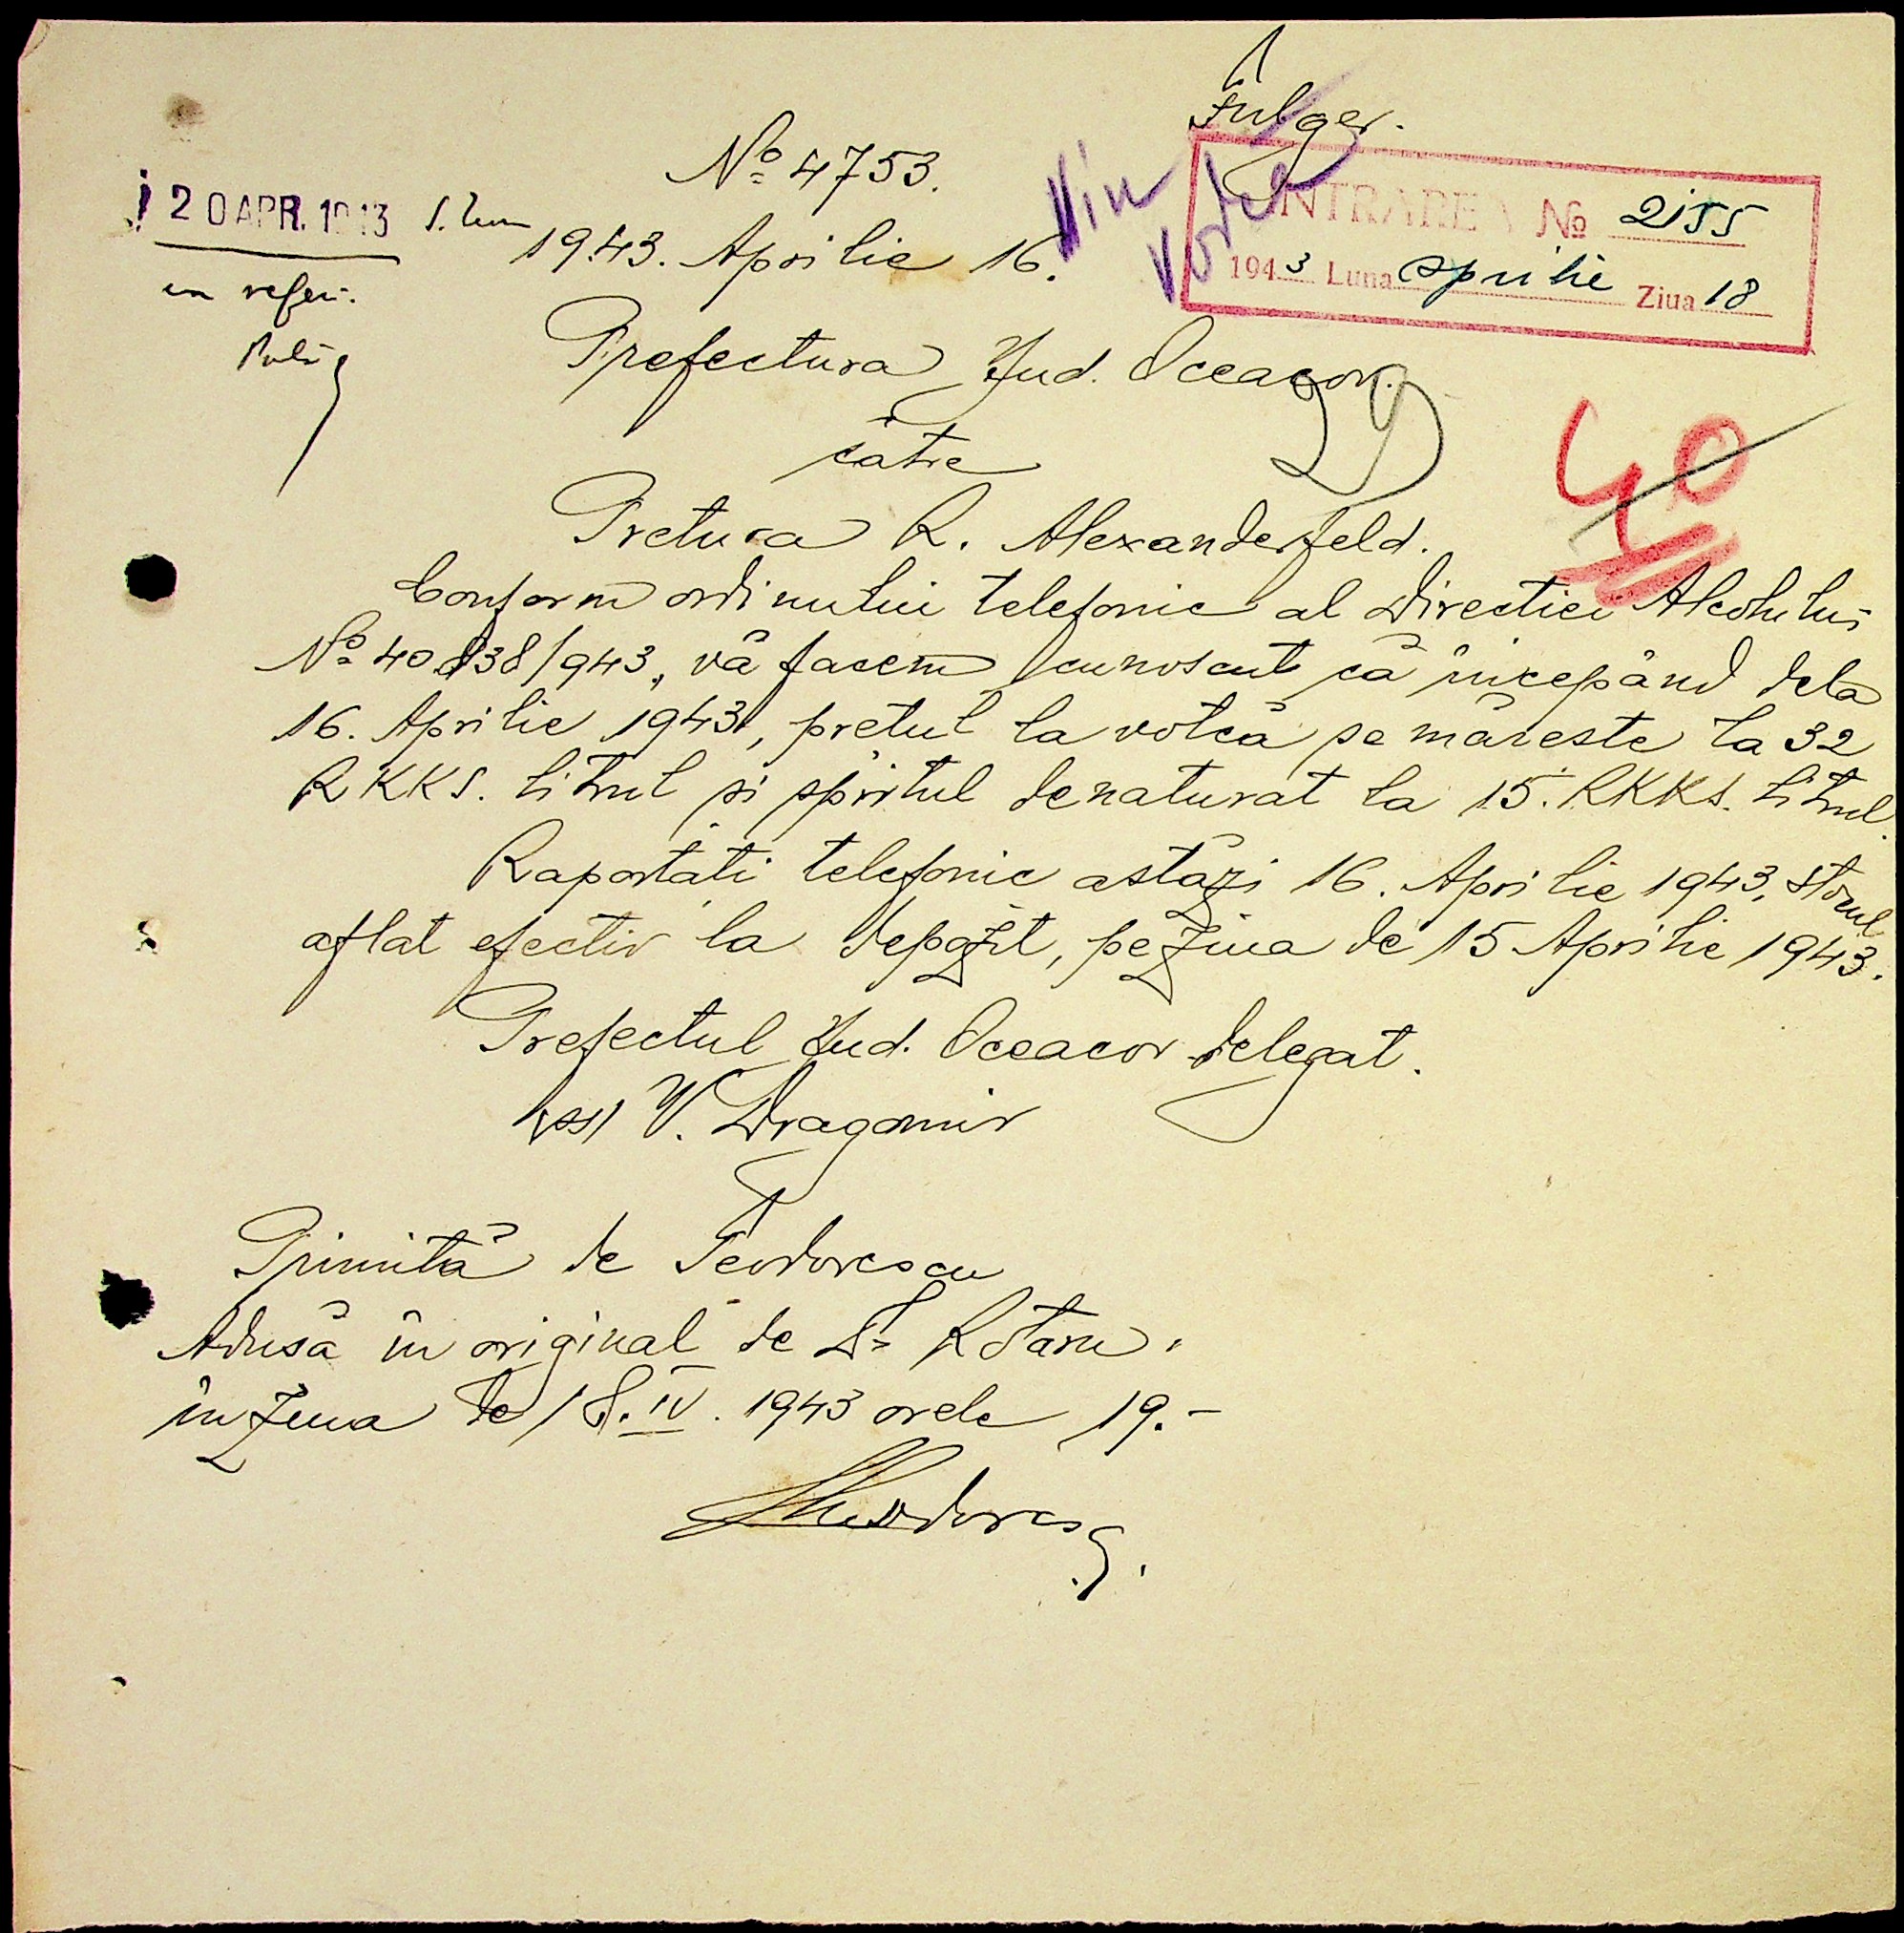 Fulger.
Nº 4753.
Vin
Vodcă
INTRAREA № 2155
1943 Luna Aprilie Ziua 18
20 APR. 1943
1943. Aprilie 16.
un refer.
Prefectura Jud. Oceacov.
29
40
către
Pretura R. Alexanderfeld.
Conform ordinului telefonic al Directiei Alcolului
Nº 40838/943, vă facem cunoscut că începând dela
16. Aprilie 1943, pretul la votcă se măreste la 32
RKKS. litrul si spiritul denaturat la 15. RKKS. litrul.
Raportati telefonic astăzi 16. Aprilie 1943, stocul
aflat efectiv la depozit, pe ziua de 15 Aprilie 1943.
Prefectul Jud. Oceacov delegat.
(ss) V. Dragomir
Primită de Teodorescu
Adusă în original de Dl Rotaru.
în ziua de 18. IV. 1943 orele 19.-